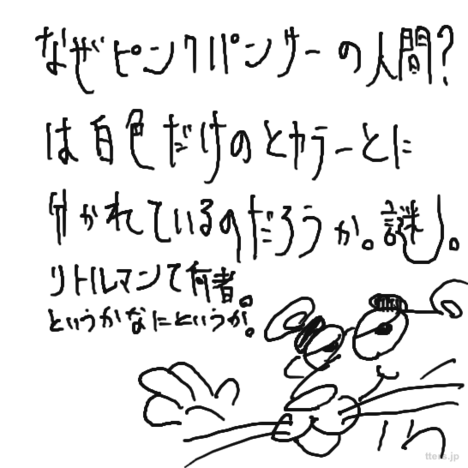 なぜピンクパンサーの人間?
は白色だけのとカラーとに
分かれているのだろうか。謎。
リトルマンて何者。
というかなにというか。
ttera.jp